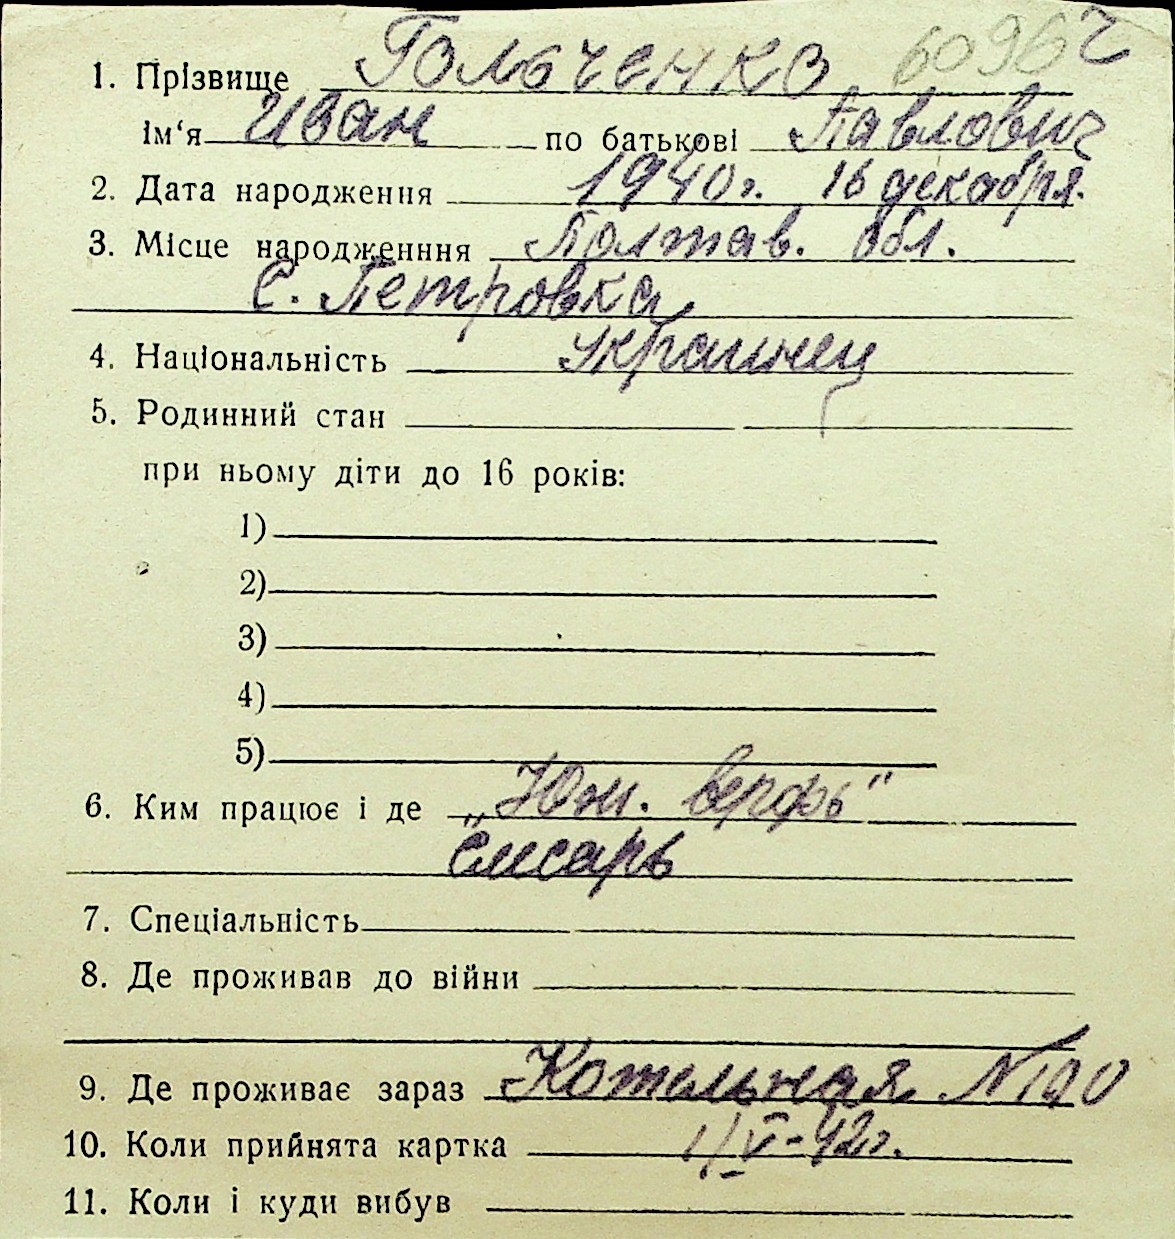 1. Прізвище Гольченко 6096 2
ім‘я Иван по батькові Павлович
2. Дата народження 1940 г. 16 декабря.
3. Місце народженння Полтав. обл.
с. Петровка
4. Національність Украинец
5. Родинний стан
при ньому діти до 16 років:
1)
2)
3)
4)
5)
6. Ким працює і де „Юж. верфь"
Слесарь
7. Спеціальність
8. Де проживав до війни
9. Де проживає зараз Котельная №
10. Коли прийнята картка 1/V-42г.
11. Коли і куди вибув